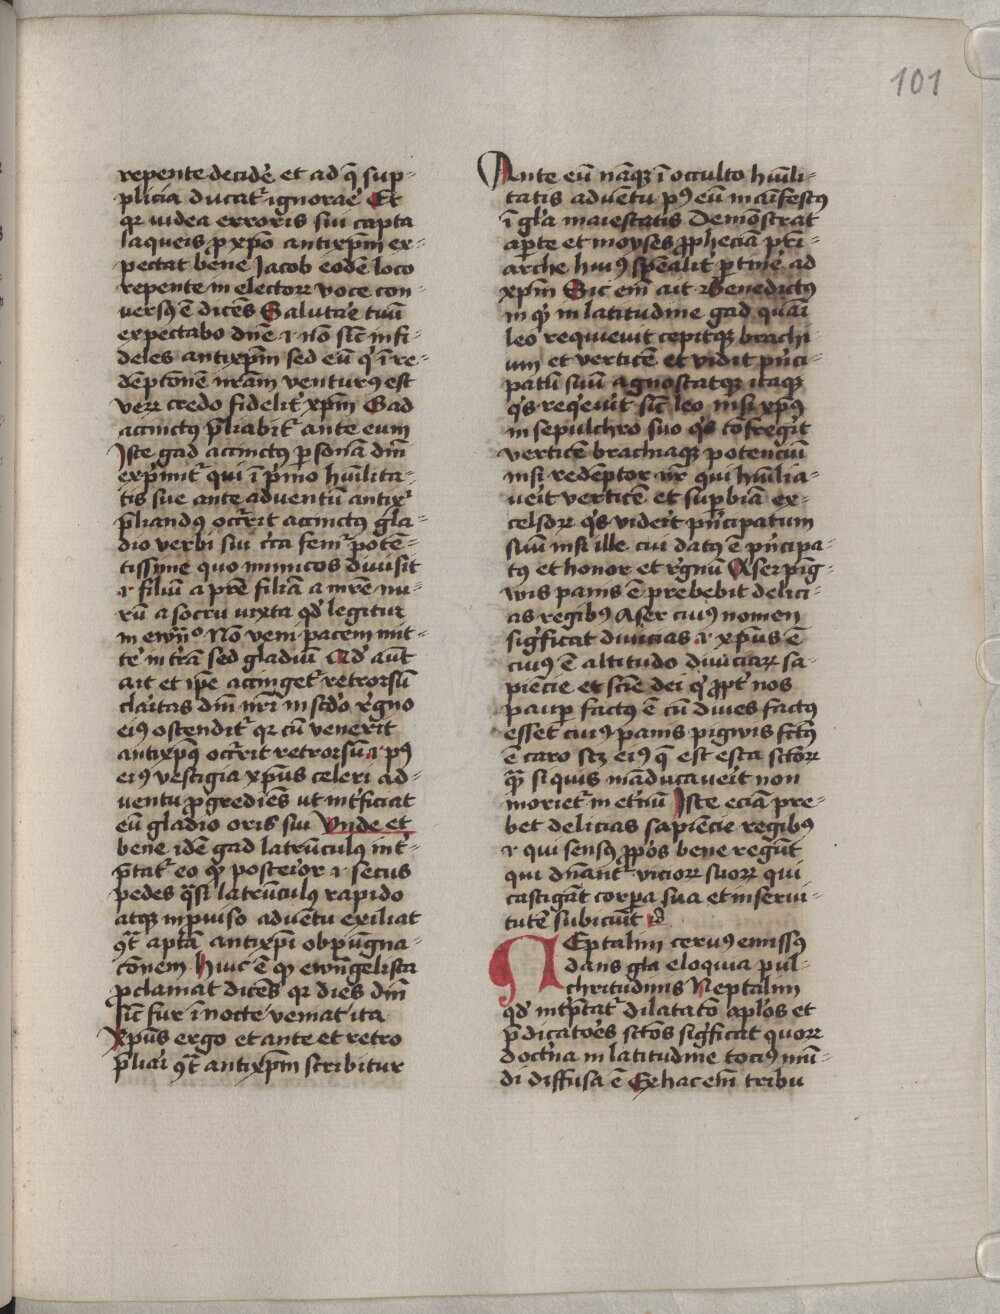 101
repente decide᷑ et ad q̄ sup⸗
plicia ducat᷑ ignorae᷑ Et
qr videa erroris sui capta
laqueis p xp̄o antixp̄m ex⸗
pectat bene Jacob eodē loco
repente in electoꝝ voce con⸗
versꝰ ē dicēs Saluta᷑e tuū
expectabo dn̄e ⁊ nō sic̄ infi⸗
deles antixp̄m sed eū q i re⸗
dēptōnē nr̄am venturꝰ est
veꝝ credo fidelit᷑ xp̄m Gad
accinctꝰ p̄liabit᷑ ante eum
Iste gad accinctꝰ psonā dn̄i
exp̄mit᷑ qui ī p͛mo hūilita⸗
tis sue ante adventū antixͥ
p̄liandꝰ occ᷑rit accinctꝰ gla⸗
dio verbi sui c͛ca fem᷑ potē⸗
tissime quo inimicos divisit
⁊ filiū a pr̄e filiā a mr̄e nu⸗
rū a socru iuxta qd᷑ legitur
in ewn̄ᵒ Nō veni pacem mit⸗
te᷑ in tr̄a sed gladiū Ad᷑ aūt
ait et ip̄e accinget᷑ retrorsū
cla᷑itas dn̄i nr̄i in scd᷑o regno
eiꝰ ostendit᷑ qr cū venerit
antixpꝰ occ᷑rit retrorsū ⁊ pꝰ
eiꝰ vestigia xp̄us celeri ad⸗
ventu pgrediēs ut int᷑ficiat
eū gladio oris sui Vnde et
bene idē gad latrūculꝰ int᷑⸗
p̄tat᷑ eo qͩ posterior ⁊ secus
pedes q̄si latrūculꝰ rapido
atqꝫ inpviso adventu exiliat
ꝯt᷑ aptā antixp̄i obpūgna⸗
cōnem Huic ē qͩ ewn̄gelista
pclamat dicēs qr dies dn̄i
sic̄ fur i nocte veniat ita
Xp̄us ergo et ante et retro
p̄lia᷑i ꝯt᷑ antixp̄m scribitur
Ante eū nāqꝫ ī occulto hūili⸗
tatis advētu pꝰ eū maīfestꝰ
ī gl̄a maiestatis Demōstrat
apte et moyses ꝓpheciā pt͛i⸗
arche hui᷒ spēalit᷑ ptine᷑ ad
xp̄m Sic em̄ ait Benedictꝰ
in qͦ in latitudine gad quasi
leo requievit cepitqꝫ brachi⸗
um et verticē et vidit p͛nci⸗
patū suū agnoscatqꝫ itaqꝫ
qͥs req᷑evit sic̄ leo nisi xp̄us
in sepulchro suo qͥs cōfregit
verticē brachiaqꝫ potenciū
nisi redēptor nr̄ qui hūilia⸗
ve᷑it verticē et supbiā ex⸗
celsoꝝ qͥs vide᷑it p͛ncipatum
suū nisi ille cui datꝰ ē p͛ncipa⸗
tꝰ et honor et regnū Aser pig⸗
wis panis ē prebebit delici⸗
as regibꝰ Aser cuiꝰ nomen
sig͛ficat divicias ⁊ xp̄us ē
cuiꝰ ē altitudo diviciaꝝ sa⸗
piēcie et sciē dei qͥ ꝓpt᷑ nos
paup factꝰ ē cū dives factꝰ
esset cuiꝰ panis pigwis fctꝰ
ē caro scꝫ eiꝰ q̄ est esca sctōꝝ
quā si quis māducave᷑it non
moriet᷑ in et᷑nū Iste eciā pre⸗
bet delicias sapiēcie regibꝰ
⁊ qui sensꝰ ꝓp͛os bene regūt
qui dn̄ant᷑ vicioꝝ suoꝝ qui
castigāt corpa sua et in servi⸗
tutē subiciūt
NEptalim cervꝰ emissꝰ
dans gl̄a eloquia pul⸗
chritudinis Neptalim
qd᷑ int᷑p̄tat᷑ dilatatō apl̄os et
p̄dicatō᷑es sctōs sig͛ficat quoꝝ
doct͛na in latitudine tociꝰ mū⸗
di diffusa ē Ex hac em̄ tribu